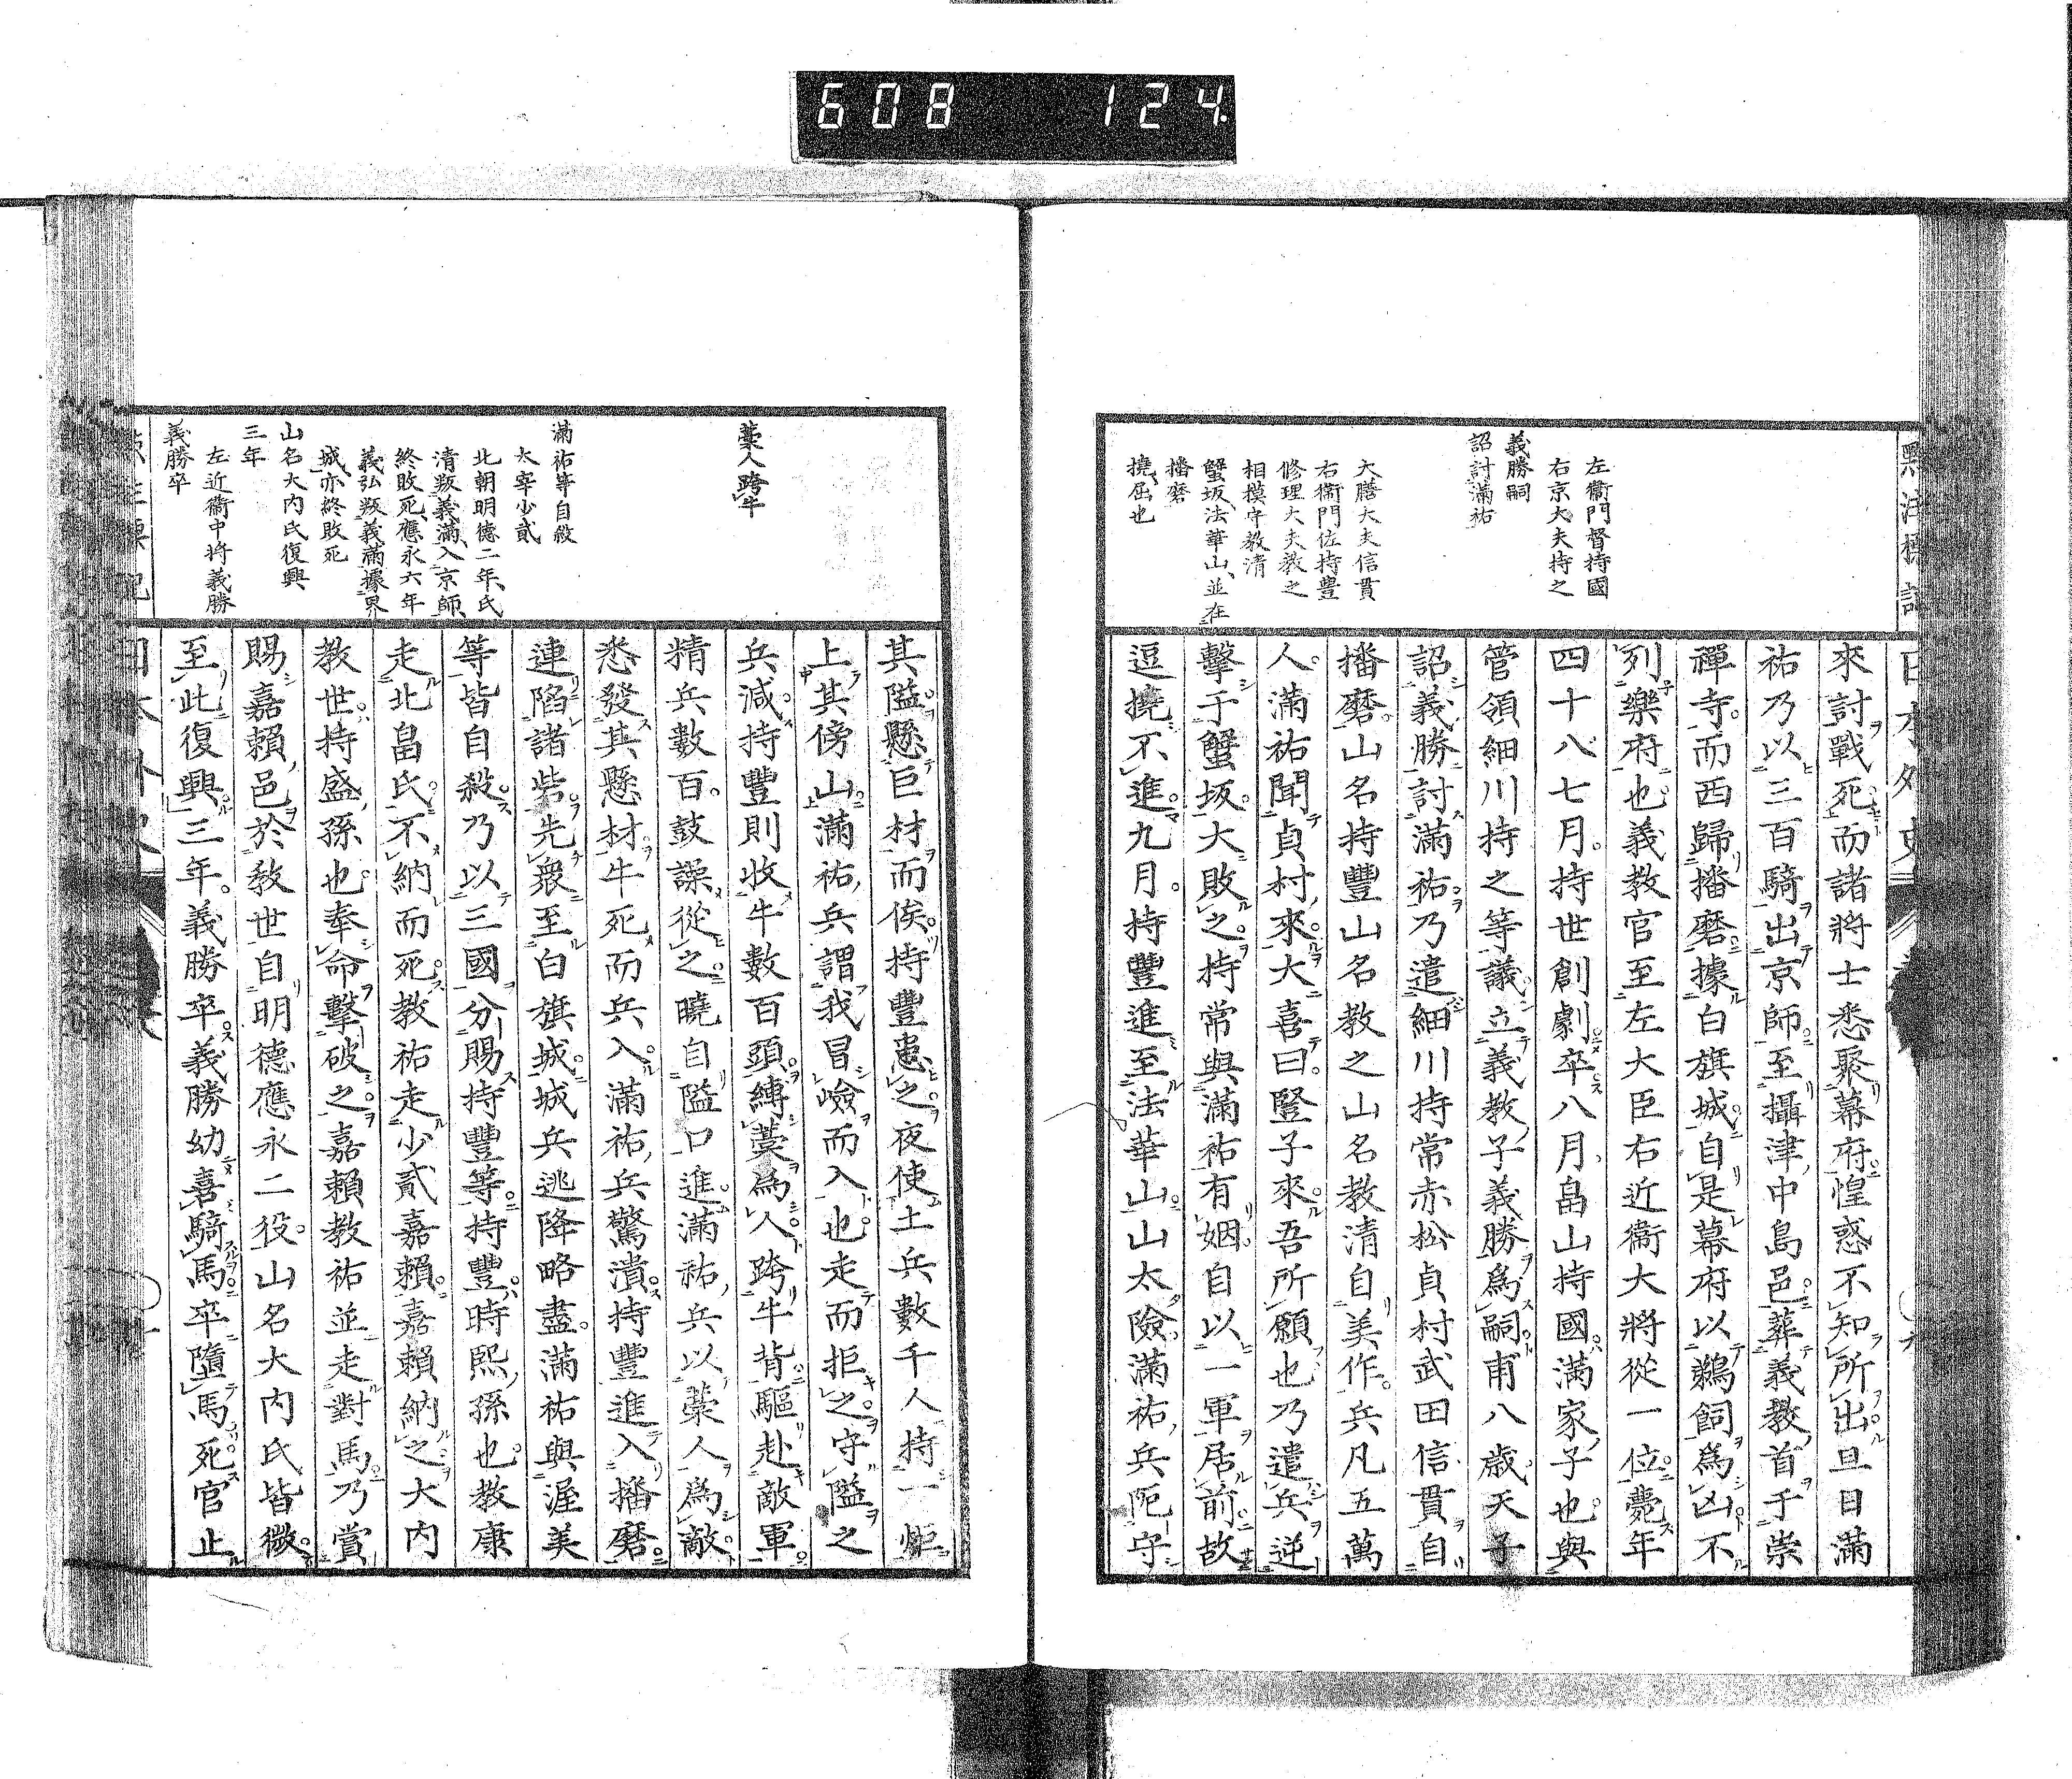 608 124
左衞門督持國
右京大夫持之
義勝嗣
詔討滿祐
大膳大夫信貫
右衞門佐持豊
修理大夫教之
相模守教清
蟹坂、法華山、並在
播磨
撓、屈也
來討戰死而諸將士悉聚幕府惶惑不知所出旦日滿
祐乃以三百騎出京師至攝津中島邑葬義教首于崇
禪寺而西歸播磨據白旗城自是幕府以鵜飼爲凶不
列樂府也義教官至左大臣右近衞大將從一位薨年
四十八七月持世創劇卒八月畠山持國滿家子也與
管領細川持之等議立義教子義勝爲嗣甫八歳天子
詔義勝討滿祐乃遣細川持常赤松貞村武田信貫自
播磨山名持豐山名教之山名教清自美作兵凡五萬
人滿祐聞貞村來大喜曰豎子來吾所願也乃遣兵逆
擊于蟹坂大敗之持常與滿祐有姻自以一軍居前故
逗撓不進九月持豐進至法華山山太險滿祐兵阨守
藁人跨牛
滿祐等自殺
大宰少貳
北朝明德二年、氏
清叛義滿、入京師、
終敗死、應永六年
義弘叛義滿、據界
城、亦終敗死
山名大内氏復興
三年
左近衞中將義勝
義勝卒
其隘懸巨材而俟持豐患之夜使土兵數千人持一炬
上其傍山滿祐兵謂我冒嶮而入也走而拒之守隘之
兵減持豐則收牛數百頭縛藁爲人跨牛背驅赴敵軍
精兵數百鼓譟從之曉自隘口進滿祐兵以藁人爲敵
悉發其懸材牛死而兵入滿祐兵驚潰持豐進入播磨
連陷諸砦先衆至白旗城城兵逃降略盡滿祐與渥美
等皆自殺乃以三國分賜持豐等持豐時熙孫也教康
走北畠氏不納而死教祐走少貳嘉賴嘉賴納之大内
教世持盛孫也奉命擊破之嘉賴教祐並走對馬乃賞
賜嘉賴邑於教世自明德應永二役山名大内氏皆微
至此復興三年義勝卒義勝幼喜騎馬卒墮馬死官止